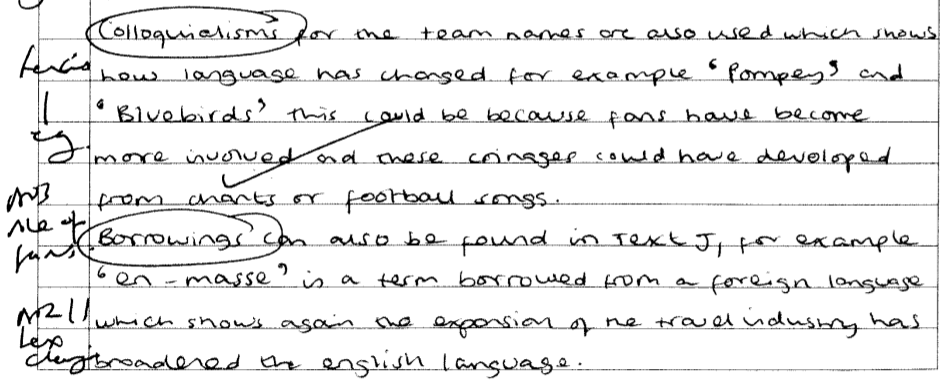 Colloquialisms for the team names are also used which shows
how language has changed for example 'Pompey' and
'Bluebirds' this could be because fans have become
more involved and these coinages could have developed
from chants or football songs.
Borrowings can also be found in Text J, for example
'en-masse' is a term borrowed from a foreign language
which shows again the expansion of the travel industry has
broadened the english language.
AO3
role of
fans
AO2
Lex
change